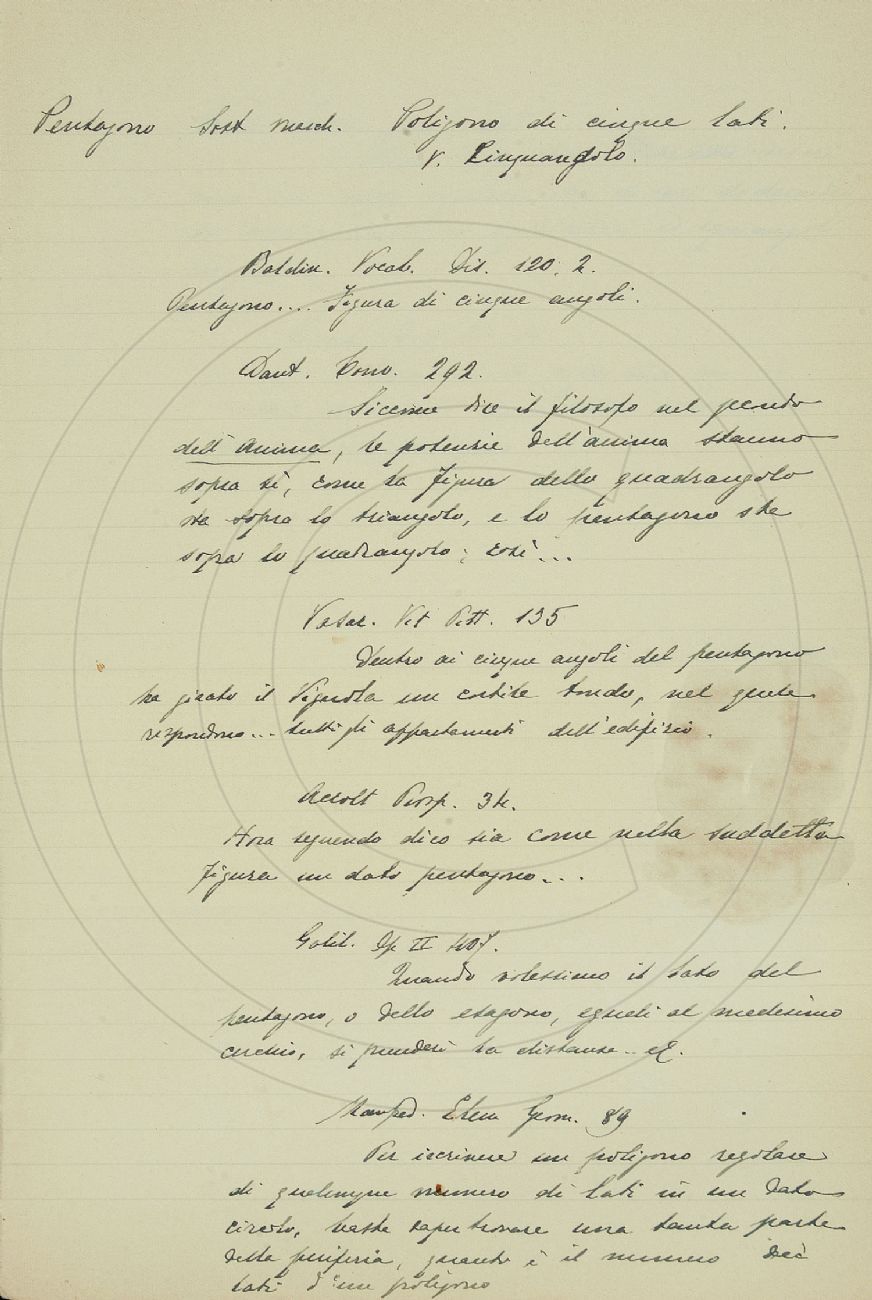 Pentagono Sost masch. Poligono di cinque lati.
V. Cinquangolo.
Baldin. Vocab. Dis. 120. 2.
Pentagono.... Figura di cinque angoli.
Dant. Conv. 292.
Siccome dice il filosofo nel secondo
dell'Anima, le potenzie dell'anima stanno
sopra sè, come la figura dello quadrangolo
sta sopra lo triangolo, e lo pentagono sta
sopra lo quadrangolo; così...
Vasar. Vit Pitt. 135
Dentro ai cinque angoli del pentagono
ha girato il Vignola un cortile tondo, nel quale
rispondono... tutti gli appartamenti dell'edifizio.
Accolt Prosp. 34.
Hora seguendo dico sia come nella suddetta
figura un dato pentagono...
Galil. Op II 407.
Quando volessimo il lato del
pentagono, o dello esagono, eguali al medesimo
cerchio, si prenderà la distanza..
Manfred. Elem Geom. 89
Per iscrivere un poligono regolare
di qualunque numero di lati in un dato
circolo, basta saper trovare una tanta parte
della periferia, quanto è il numero dei
lati d'un poligono